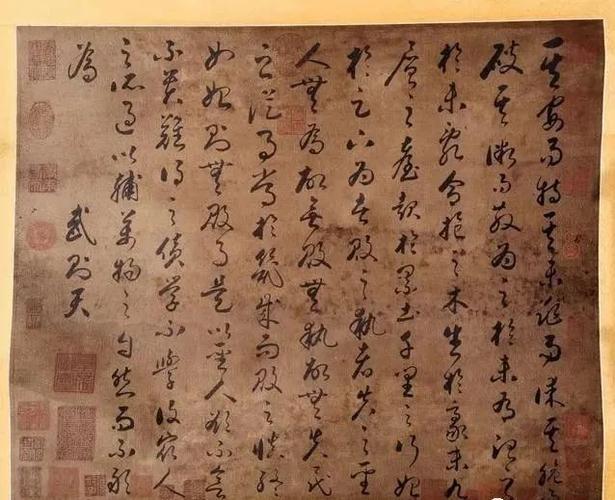 其安易持其未兆易謀其脆易
破其微易散為之於未有治之
於未亂合抱之木生於毫末九
層之臺起於累土千里之行始
於足下為者敗之執者失之聖
人無為故無敗無執故無失民
之從事常於幾成而敗之慎終
如始則無敗事是以聖人欲不欲
不貴難得之貨學不學復眾人
之所過以輔萬物之自然而不敢
為
武則天